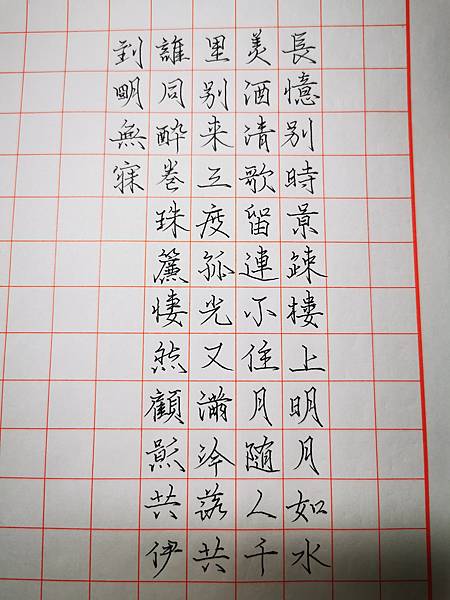 長憶別時景疎樓上明月如水
美酒清歌留連不住月随人千
里別来三度孤光又滿冷落共
誰同醉卷珠簾悽然顧影共伊
到明無寐